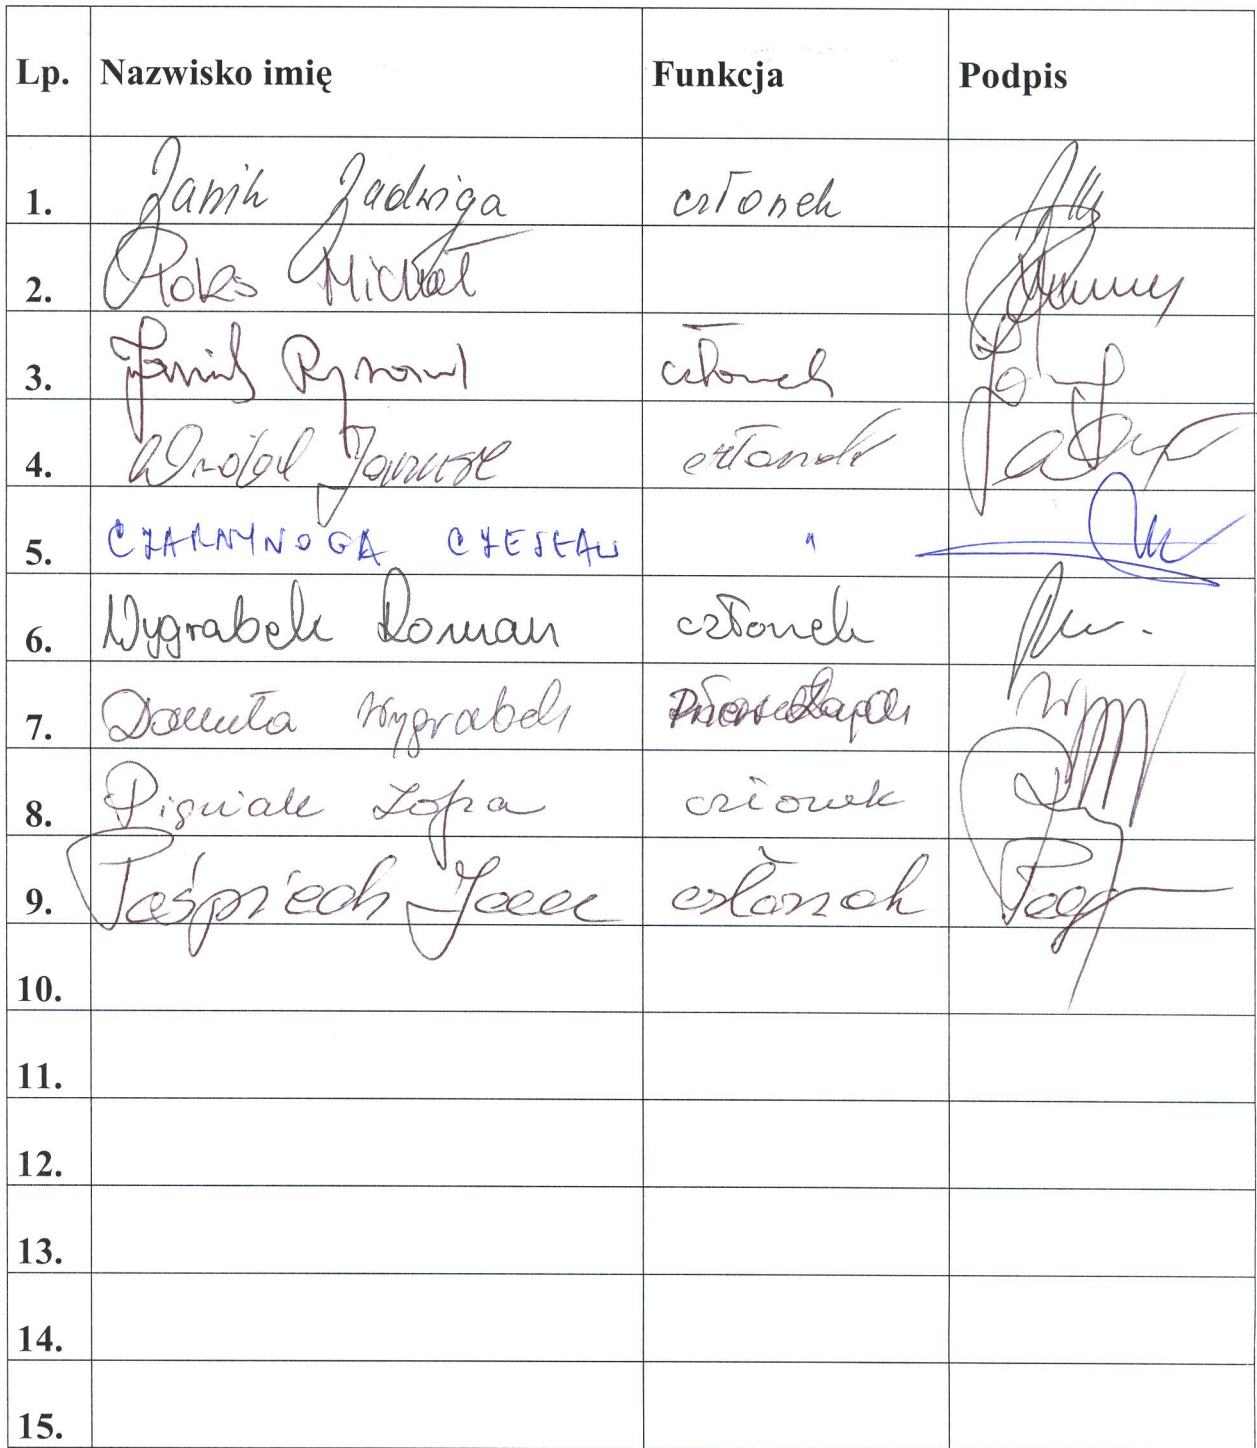 Lp. Nazwisko imię Funkcja Podpis
1. Janik Jadwiga członek
2. Michał
3. Janik Ryszard członek
4. Wróbel Janusz członek
5. CZARNYNOGA CZESŁAW "
6. Wygrabek Roman członek
7. Danuta Wygrabek
8. Pigniak Zofia członek
9. Pośpiech członek
10.
11.
12.
13.
14.
15.